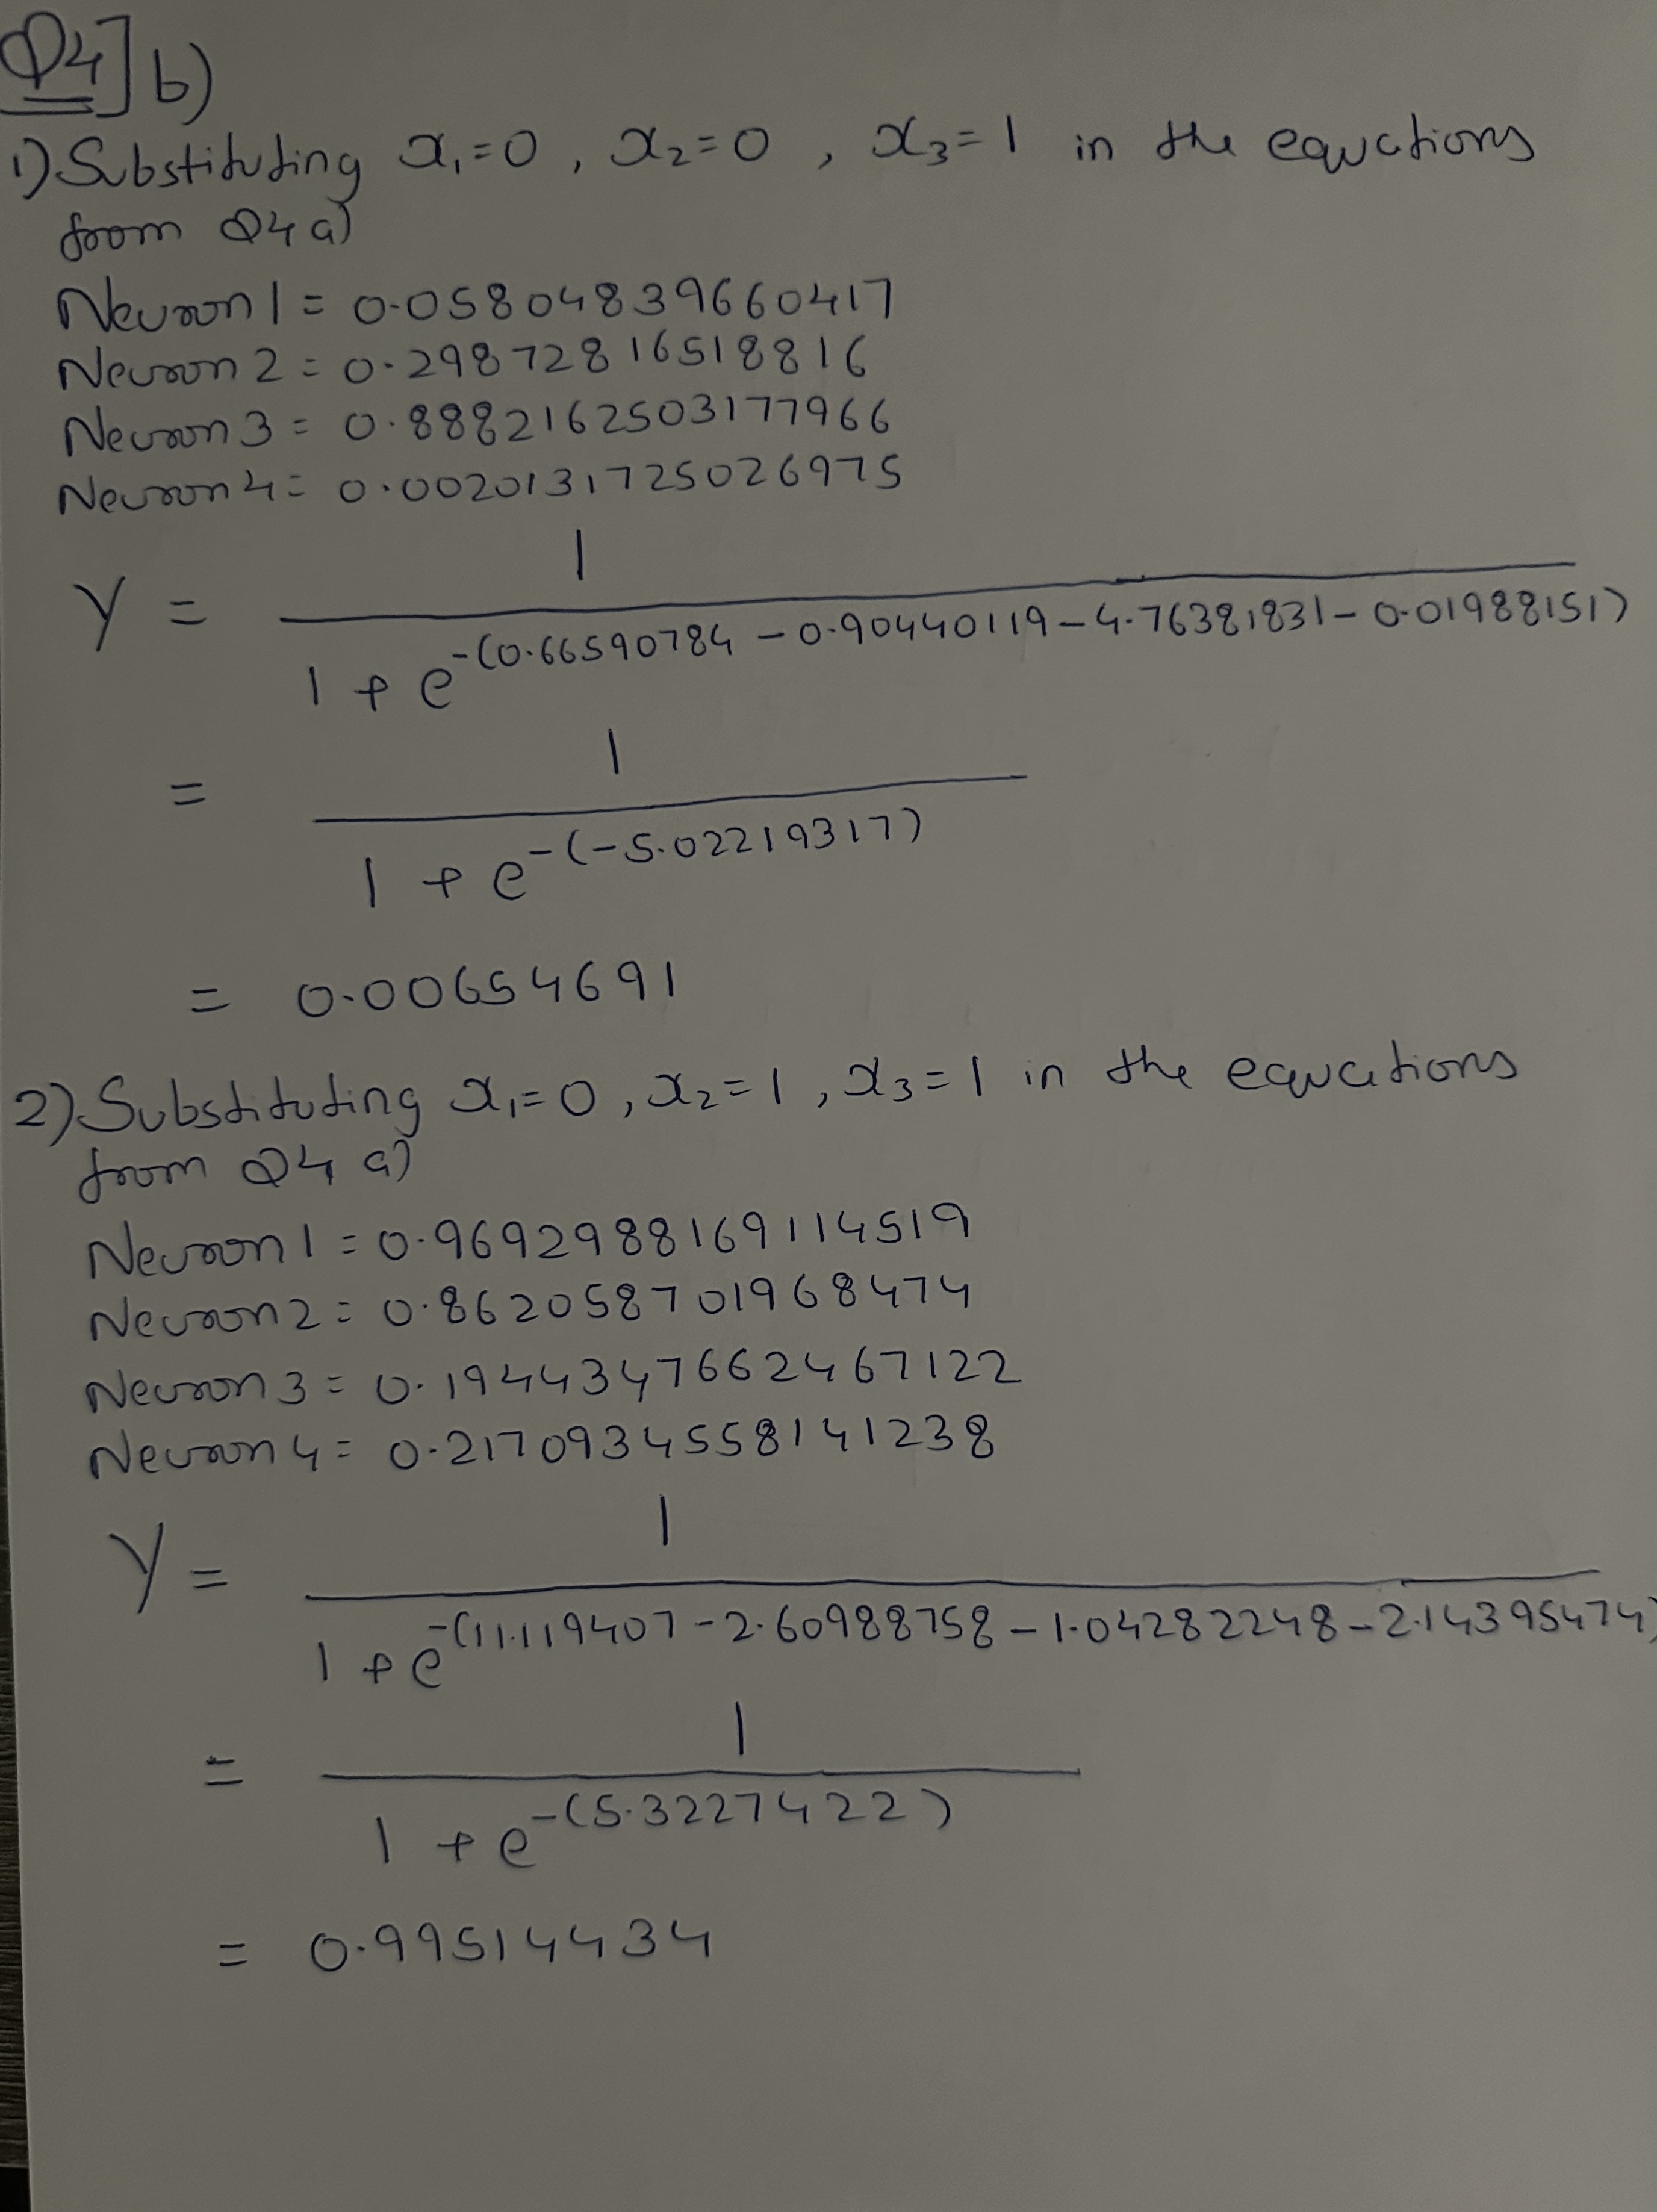 Q4] b)
1) Substituting x₁=0, x₂=0, x₃=1 in the equations
from Q4 a)
Neuron 1 = 0.05804839660417
Neuron 2 = 0.29872816518816
Neuron 3 = 0.8882162503177966
Neuron 4 = 0.0020131725026975
Y = 1
1 + e^-(0.66590784 - 0.90440119 - 4.76381831 - 0.01988151)
= 1
1 + e^-(-5.02219317)
= 0.00654691
2) Substituting x₁=0, x₂=1, x₃=1 in the equations
from Q4 a)
Neuron 1 = 0.9692988169114519
Neuron 2 = 0.8620587701968474
Neuron 3 = 0.19443476624671 22
Neuron 4 = 0.2170934558141238
Y = 1
1 + e^-(11.119407 - 2.60988758 - 1.04282248 - 2.14395474)
= 1
1 + e^-(5.3227422)
= 0.99514434